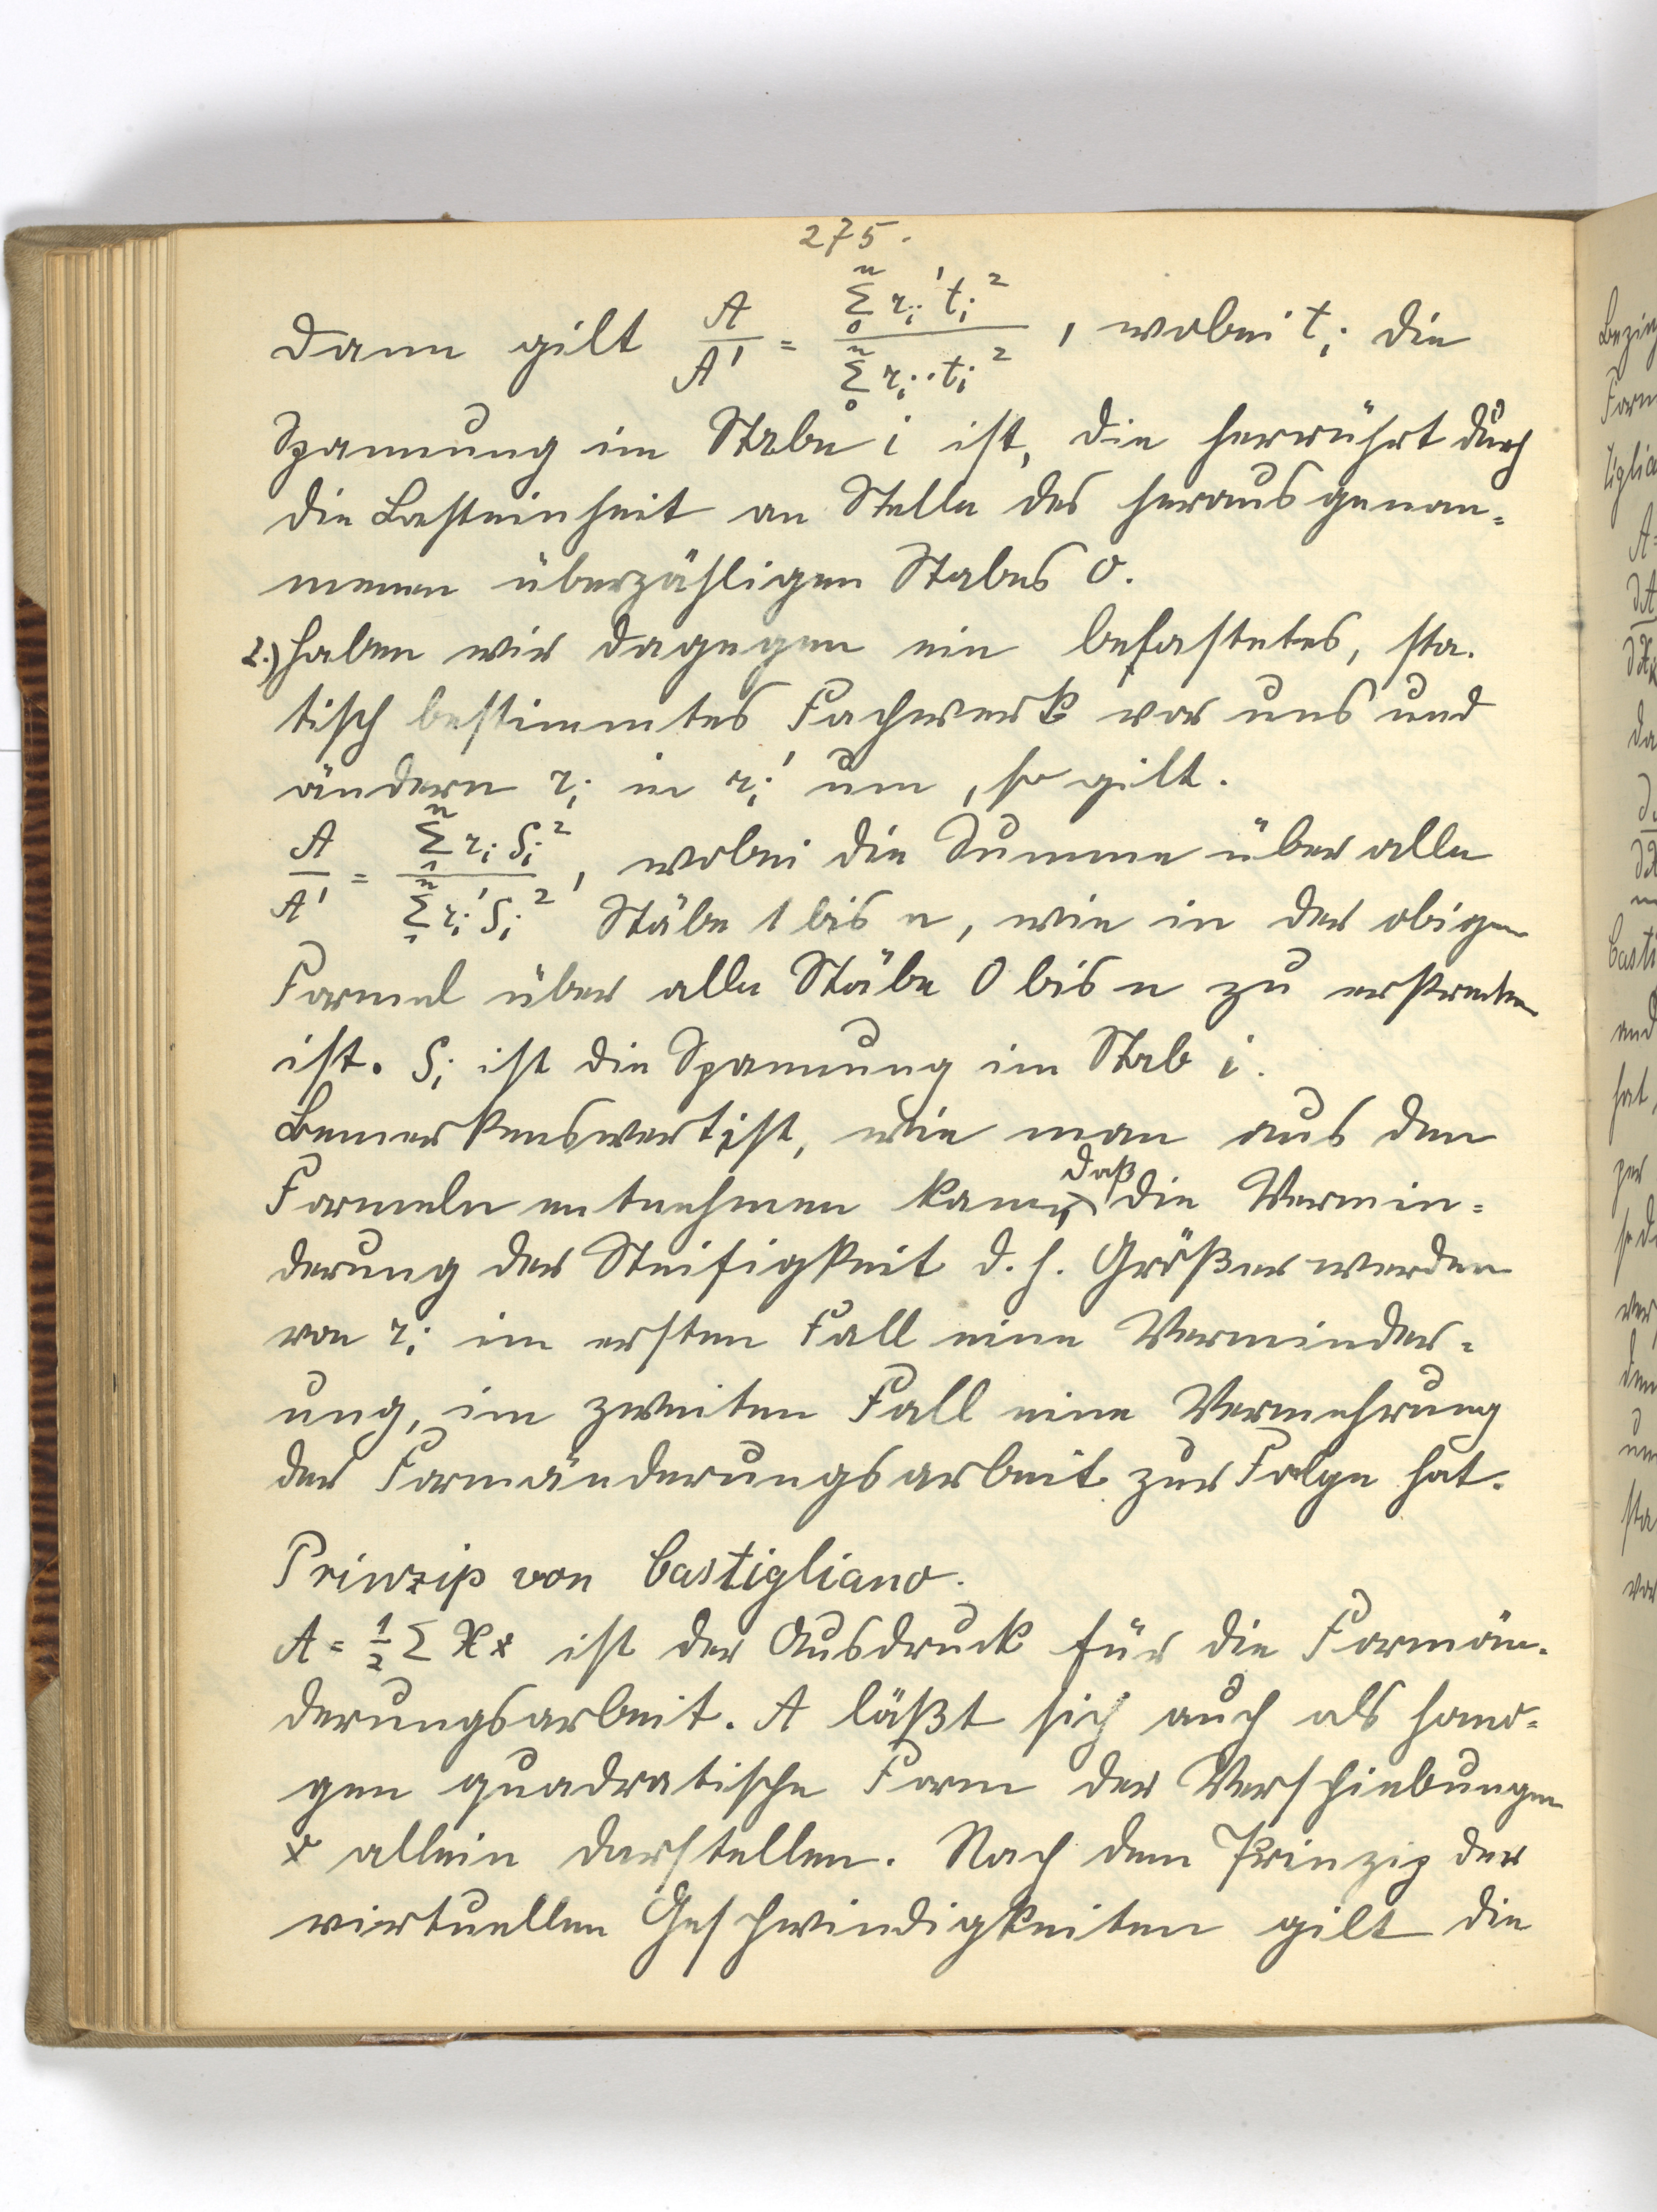 275.
Dann gilt A/A' = Σ₀ⁿ rᵢ' tᵢ² / Σ₀ⁿ rᵢ · tᵢ² , wobei tᵢ die
Spannung im Stabe i ist, die herrührt durch
die Lasteinheit an Stelle des herausgenom=
menen überzähligen Stabes 0.
2.) Haben wir dagegen ein belastetes, sta-
tisch bestimmtes Fachwerk vor uns und
ändern rᵢ in rᵢ' um, so gilt.
A/A' = Σ₁ⁿ rᵢ Sᵢ² / Σ₁ⁿ rᵢ' Sᵢ² , wobei die Summe über alle
Stäbe 1 bis n, wie in der obigen
Formel über alle Stäbe 0 bis n zu erstrecken
ist. Sᵢ ist die Spannung im Stab i.
Bemerkenswert ist, wie man aus den
Formeln entnehmen kann, daß die Vermin=
derung der Steifigkeit d.h. Größer werden
von rᵢ im ersten Fall eine Verminder=
ung, im zweiten Fall eine Vermehrung
der Formänderungsarbeit zur Folge hat.
Prinzip von Castigliano.
A = ½ Σ X x ist der Ausdruck für die Formän-
derungsarbeit. A läßt sich auch als homo=
gen quadratische Form der Verschiebungen
x allein darstellen. Nach dem Prinzip der
virtuellen Geschwindigkeiten gilt die